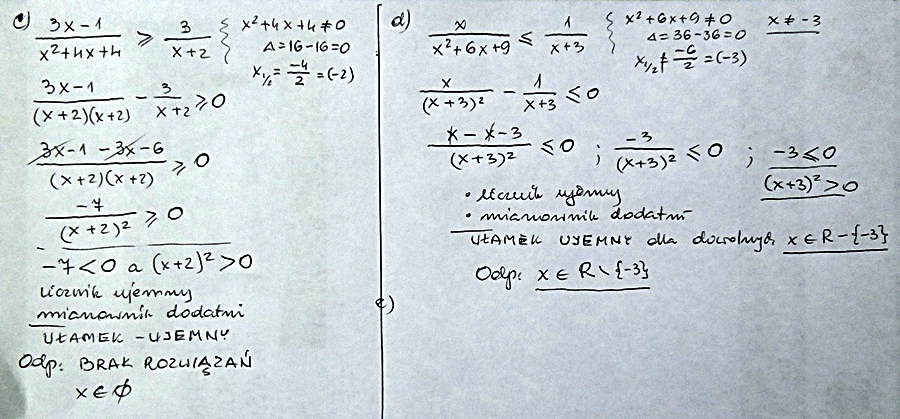 c) (3x-1)/(x²+4x+4) ⩾ 3/(x+2) { x²+4x+4≠0
Δ=16-16=0
x₁/₂ = -4/2 = (-2)
(3x-1)/((x+2)(x+2)) - 3/(x+2) ⩾ 0
(3x-1-3x-6)/((x+2)(x+2)) ⩾ 0
-7/(x+2)² ⩾ 0
-7<0 a (x+2)²>0
licznik ujemny
mianownik dodatni
UŁAMEK - UJEMNY
Odp: BRAK ROZWIĄZAŃ
x∈∅
d) x/(x²+6x+9) ⩽ 1/(x+3) { x²+6x+9≠0 x≠-3
Δ=36-36=0
x₁/₂ ≠ -6/2 = (-3)
x/(x+3)² - 1/(x+3) ⩽ 0
(x-x-3)/(x+3)² ⩽ 0 ; -3/(x+3)² ⩽ 0 ; -3⩽0
(x+3)²>0
• licznik ujemny
• mianownik dodatni
UŁAMEK UJEMNY dla dowolnych x∈R-{-3}
Odp: x∈R\{-3}
e)